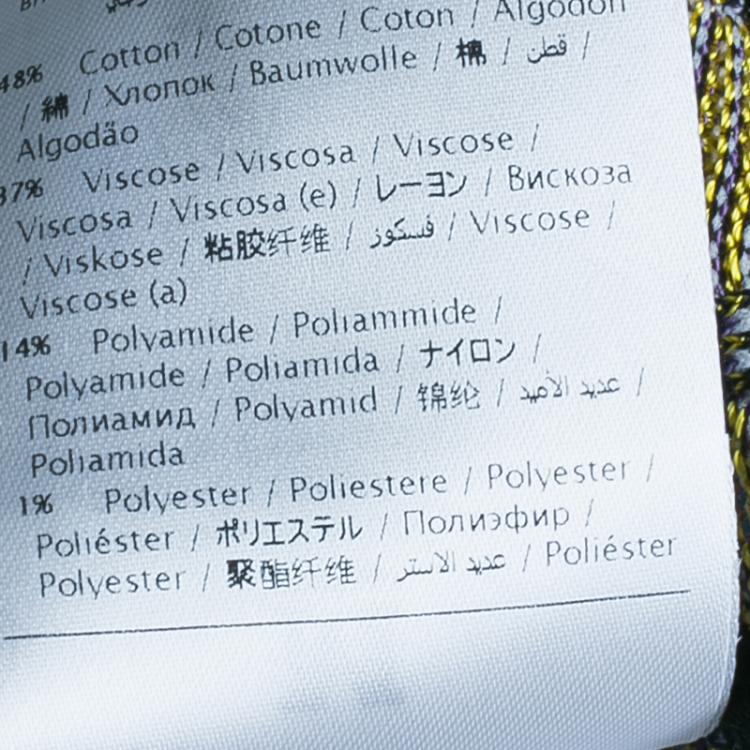 48% Cotton / Cotone / Coton / Algodón
/ 綿 / Хлопок / Baumwolle / 棉 / قطن /
Algodão
37% Viscose / Viscosa / Viscose /
Viscosa / Viscosa (e) / レーヨン / Вискоза
/ Viskose / 粘胶纤维 / فسكوز / Viscose /
Viscose (a)
14% Polyamide / Poliammide /
Polyamide / Poliamida / ナイロン /
Полиамид / Polyamid / 锦纶 / عديد الأميد /
Poliamida
1% Polyester / Poliestere / Polyester /
Poliéster / ポリエステル / Полиэфир /
Polyester / 聚酯纤维 / عديد الاستر / Poliéster